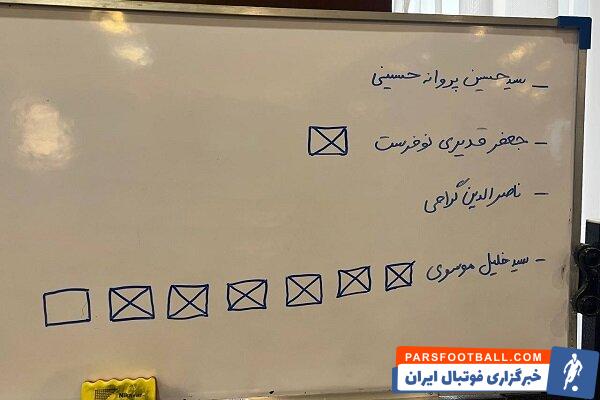 - سیدحسین پروانه حسینی
- جعفر قدیری نوفرست
- ناصرالدین گراحی
- سید خلیل موسوی
PARSFOOTBALL.COM
خبرگزاری فوتبال ایران